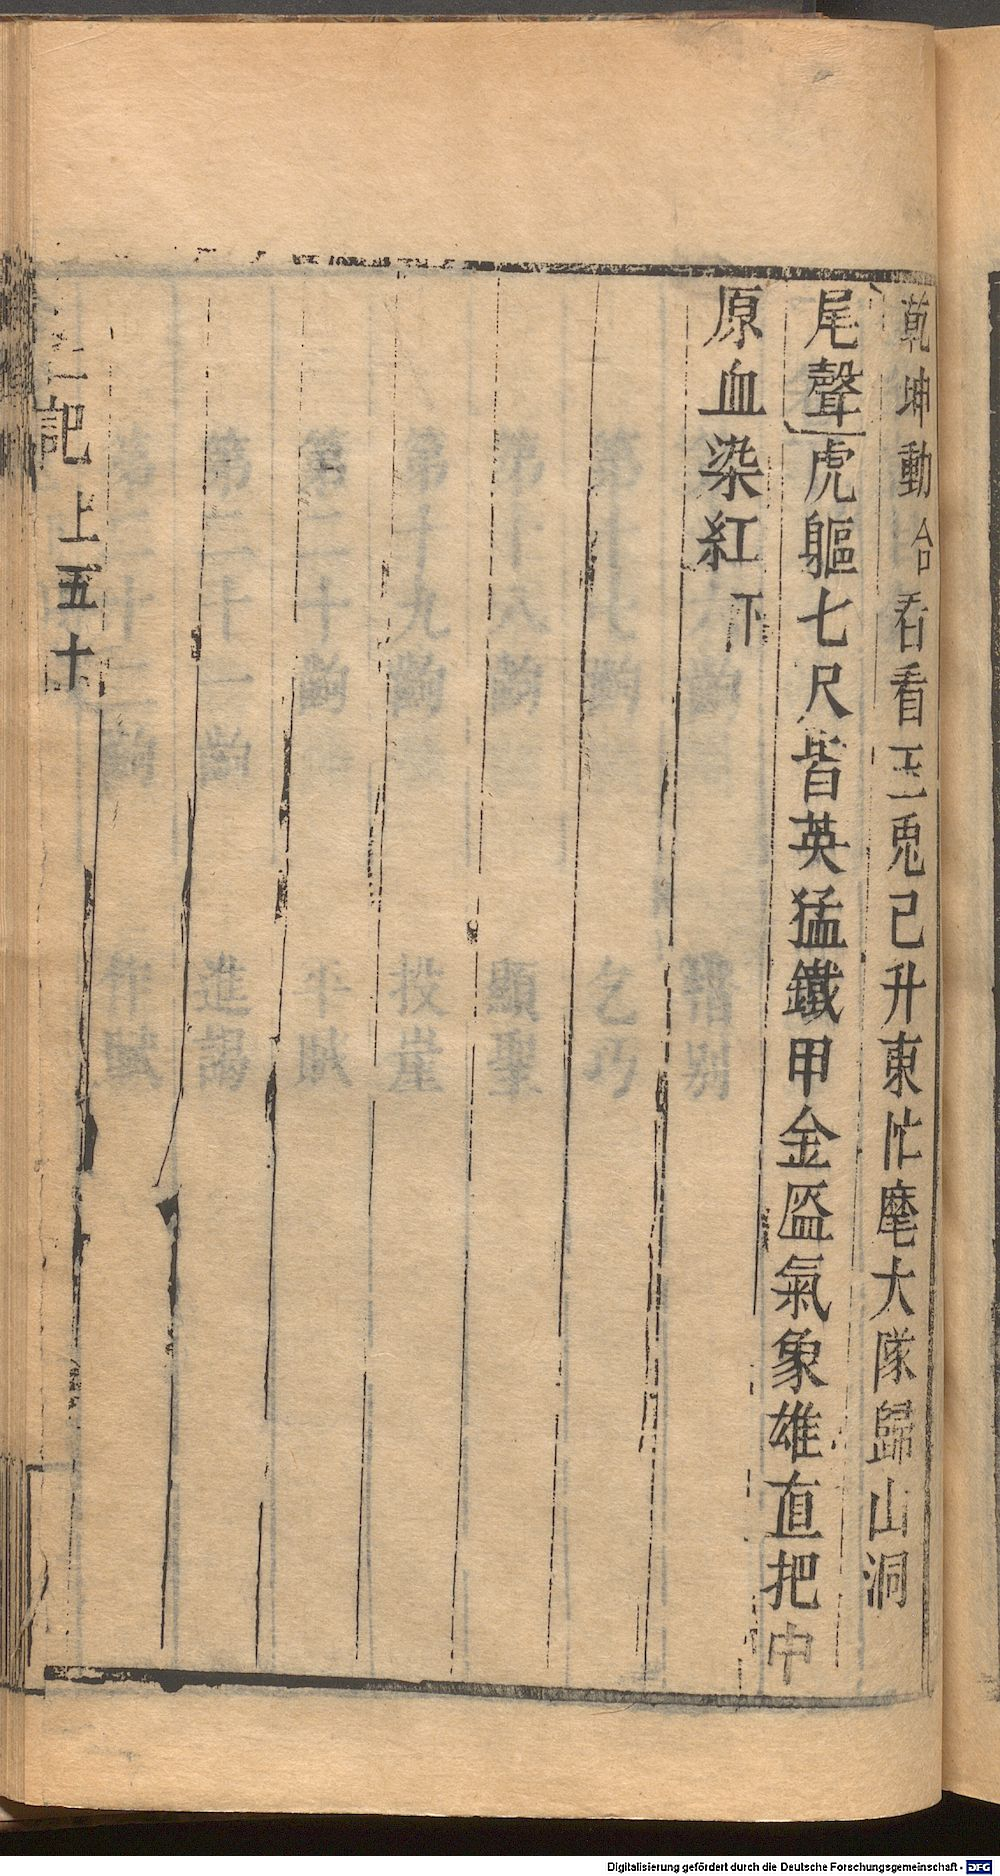 乾坤動合看看玉兎已升東忙麾大隊歸山洞
尾聲虎軀七尺皆英猛鐵甲金盔氣象雄直把中
原血染紅下
記上五十
Digitalisierung gefördert durch die Deutsche Forschungsgemeinschaft - DFG